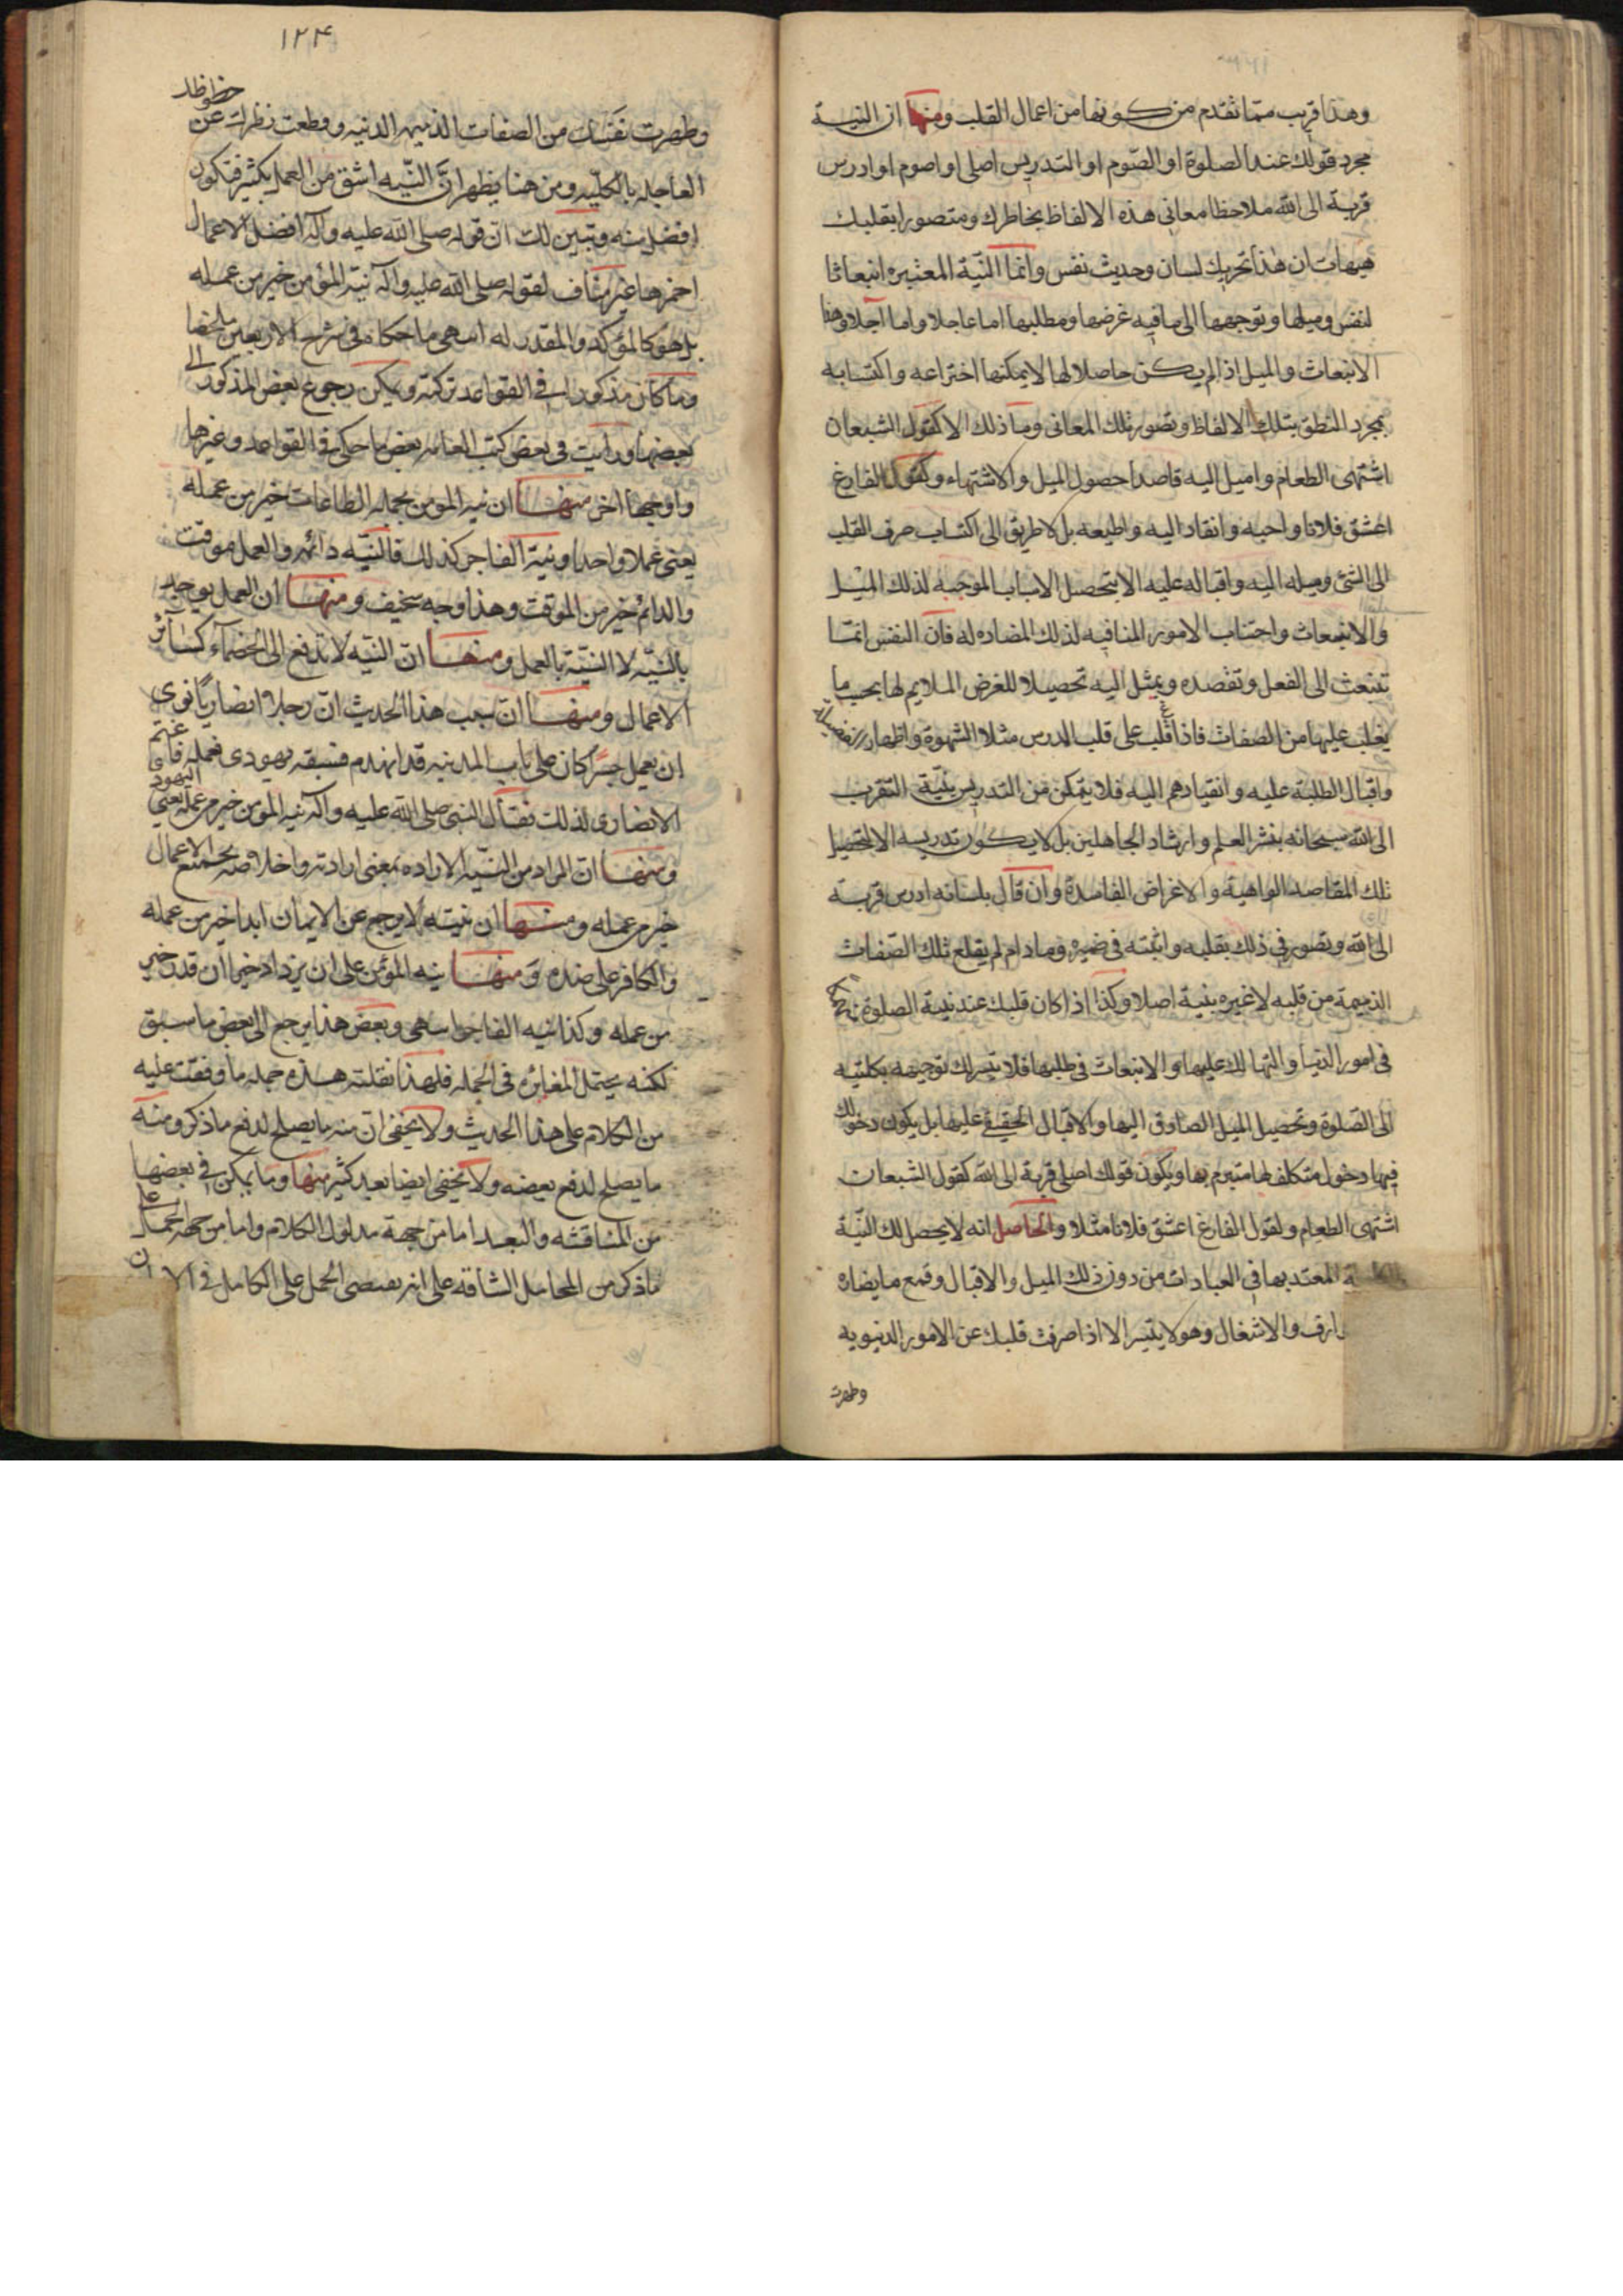 وهذا قريب مما تقدم من كونها من اعمال القلب ومنها ان النية
مجرد قولك عند الصلوة او الصوم او التدريس اصلي او اصوم او ادرس
قربة الى الله ملاحظا معاني هذه الالفاظ بخاطرك ومتصورا بقلبك
هيهات ان هذا تحريك لسان وحديث نفس وانما النية المعتبره انبعاث ا
لنفس وميلها وتوجهها الى ما فيه غرضها ومطلبها اما عاجلا واما آجلا وهذا
الانبعاث والميل اذا لم يكن حاصلا لها لا يمكنها اختراعه واكتسابه
بمجرد النطق بتلك الالفاظ وتصور تلك المعاني وما ذلك الا كقول الشبعان
اشتهى الطعام واميل اليه قاصدا حصول الميل والاشتهاء وكقول الفارغ
اعشق فلانا واحبه وانقاد اليه واطيعه بل لا طريق الى اكتساب صرف القلب
الى الشئ وميله اليه واقباله عليه الا بتحصيل الاسباب الموجبه لذلك الميل
والانبعاث واجتناب الامور المنافيه لذلك المضاده له فان النفس انما
تنبعث الى الفعل وتقصده وتميل اليه تحصيلا للغرض الملايم لها بحسب ما
يغلب عليها من الصفات فاذا غلب على قلب المدرس مثلا الشهوة واظهار الفضيله
واقبال الطلبة عليه وانقيادهم اليه فلا يتمكن من التدريس بنية التقرب
الى الله سبحانه بنشر العلم وارشاد الجاهلين بل لا يكون تدريسه الا لتحصيل
تلك المقاصد الواهية والاغراض الفاسدة وان قال بلسانه ادرس قربة
الى الله وتصور في ذلك بقلبه واثبته في ضميره وما دام لم يقلع تلك الصفات
الذميمة من قلبه لا غيره بنية اصلا وكذا اذا كان قلبك عند نية الصلوة
في امور الدنيا والتهالك عليها والانبعاث في طلبها فلا يتيسر لك توجيهه بكليته
الى الصلوة وتحصيل الميل الصادق اليها والاقبال الحقيقي عليها بل يكون دخولك
فيها دخول متكلف لها متبرم بها ويكون قولك اصلي قربة الى الله كقول الشبعان
اشتهى الطعام ولقول الفارغ اعشق فلانا مثلا والحاصل انه لا يحصل لك النية
المعتد بها في العبادات من دون ذلك الميل والاقبال وقمع ما يضاده
ارف والاشغال وهو لا يتيسر الا اذا صرفت قلبك عن الامور الدنيويه
وطهرت
١٢٤
وطهرت نفسك من الصفات الذميمه الدنيه وقطعت نظرك عن حظوظك
العاجله بالكليه ومن هنا يظهر ان النيه اشق من العمل بكثير فتكون
افضل منه وتبين لك ان قوله صلى الله عليه وآله افضل الاعمال
احمزها غير مناف لقوله صلى الله عليه وآله نية المؤمن خير من عمله
بل هو كالمؤكد والمقرر له انتهى ما حكاه في شرح الاربعين ملخصا
وما كان مذكورا في القواعد تركته ويمكن رجوع بعض المذكور الى
بعضها ورأيت في بعض كتب العامه بعض ما حكي في القواعد وغيرها
واوجها اخر منها ان نيه المؤمن بجملة الطاعات خير من عمله
يعني عملا واحدا ونية الفاجر كذلك فالنيه دائمه والعمل موقت
والدائم خير من الموقت وهذا وجه سخيف ومنها ان العمل يوجد
بالنيه لا النية بالعمل ومنها ان النيه لا تدفع الى الخصماء كسائر
الاعمال ومنها ان سبب هذا الحديث ان رجلا انصاريا نوى
ان يعمل جسرا كان على باب المدينه قد انهدم فسبقه يهودي فعمله فاغتم
الانصاري لذلك فقال النبي صلى الله عليه وآله نيه المؤمن خير من عمله يعني اليهودي
ومنها ان المراد من النيه الاراده بمعنى ارادته واخلاصه بجميع الاعمال
خير من عمله ومنها ان نيته لا يرجع عن الايمان ابدا خير من عمله
والكافر على ضده ومنها نيه المؤمن على ان يزداد خيرا ان قدر خير
من عمله وكذا نيه الفاجر انتهى وبعض هذا يرجع الى بعض ما سبق
لكنه يحتمل المغايره في الجمله فلهذا نقلته هذه جمله ما وقفت عليه
من الكلام على هذا الحديث ولا يخفى ان منه ما يصلح لدفع ما ذكر ومنه
ما يصلح لدفع بعضه ولا يخفى ايضا بعد كثير منها وما يمكن في بعضها
من المناقشه والبعد اما من جهة مدلول الكلام واما من جهة الحمل على
ما ذكر من المحامل الشاقه على انه يقتضي الحمل على الكامل في الا ان